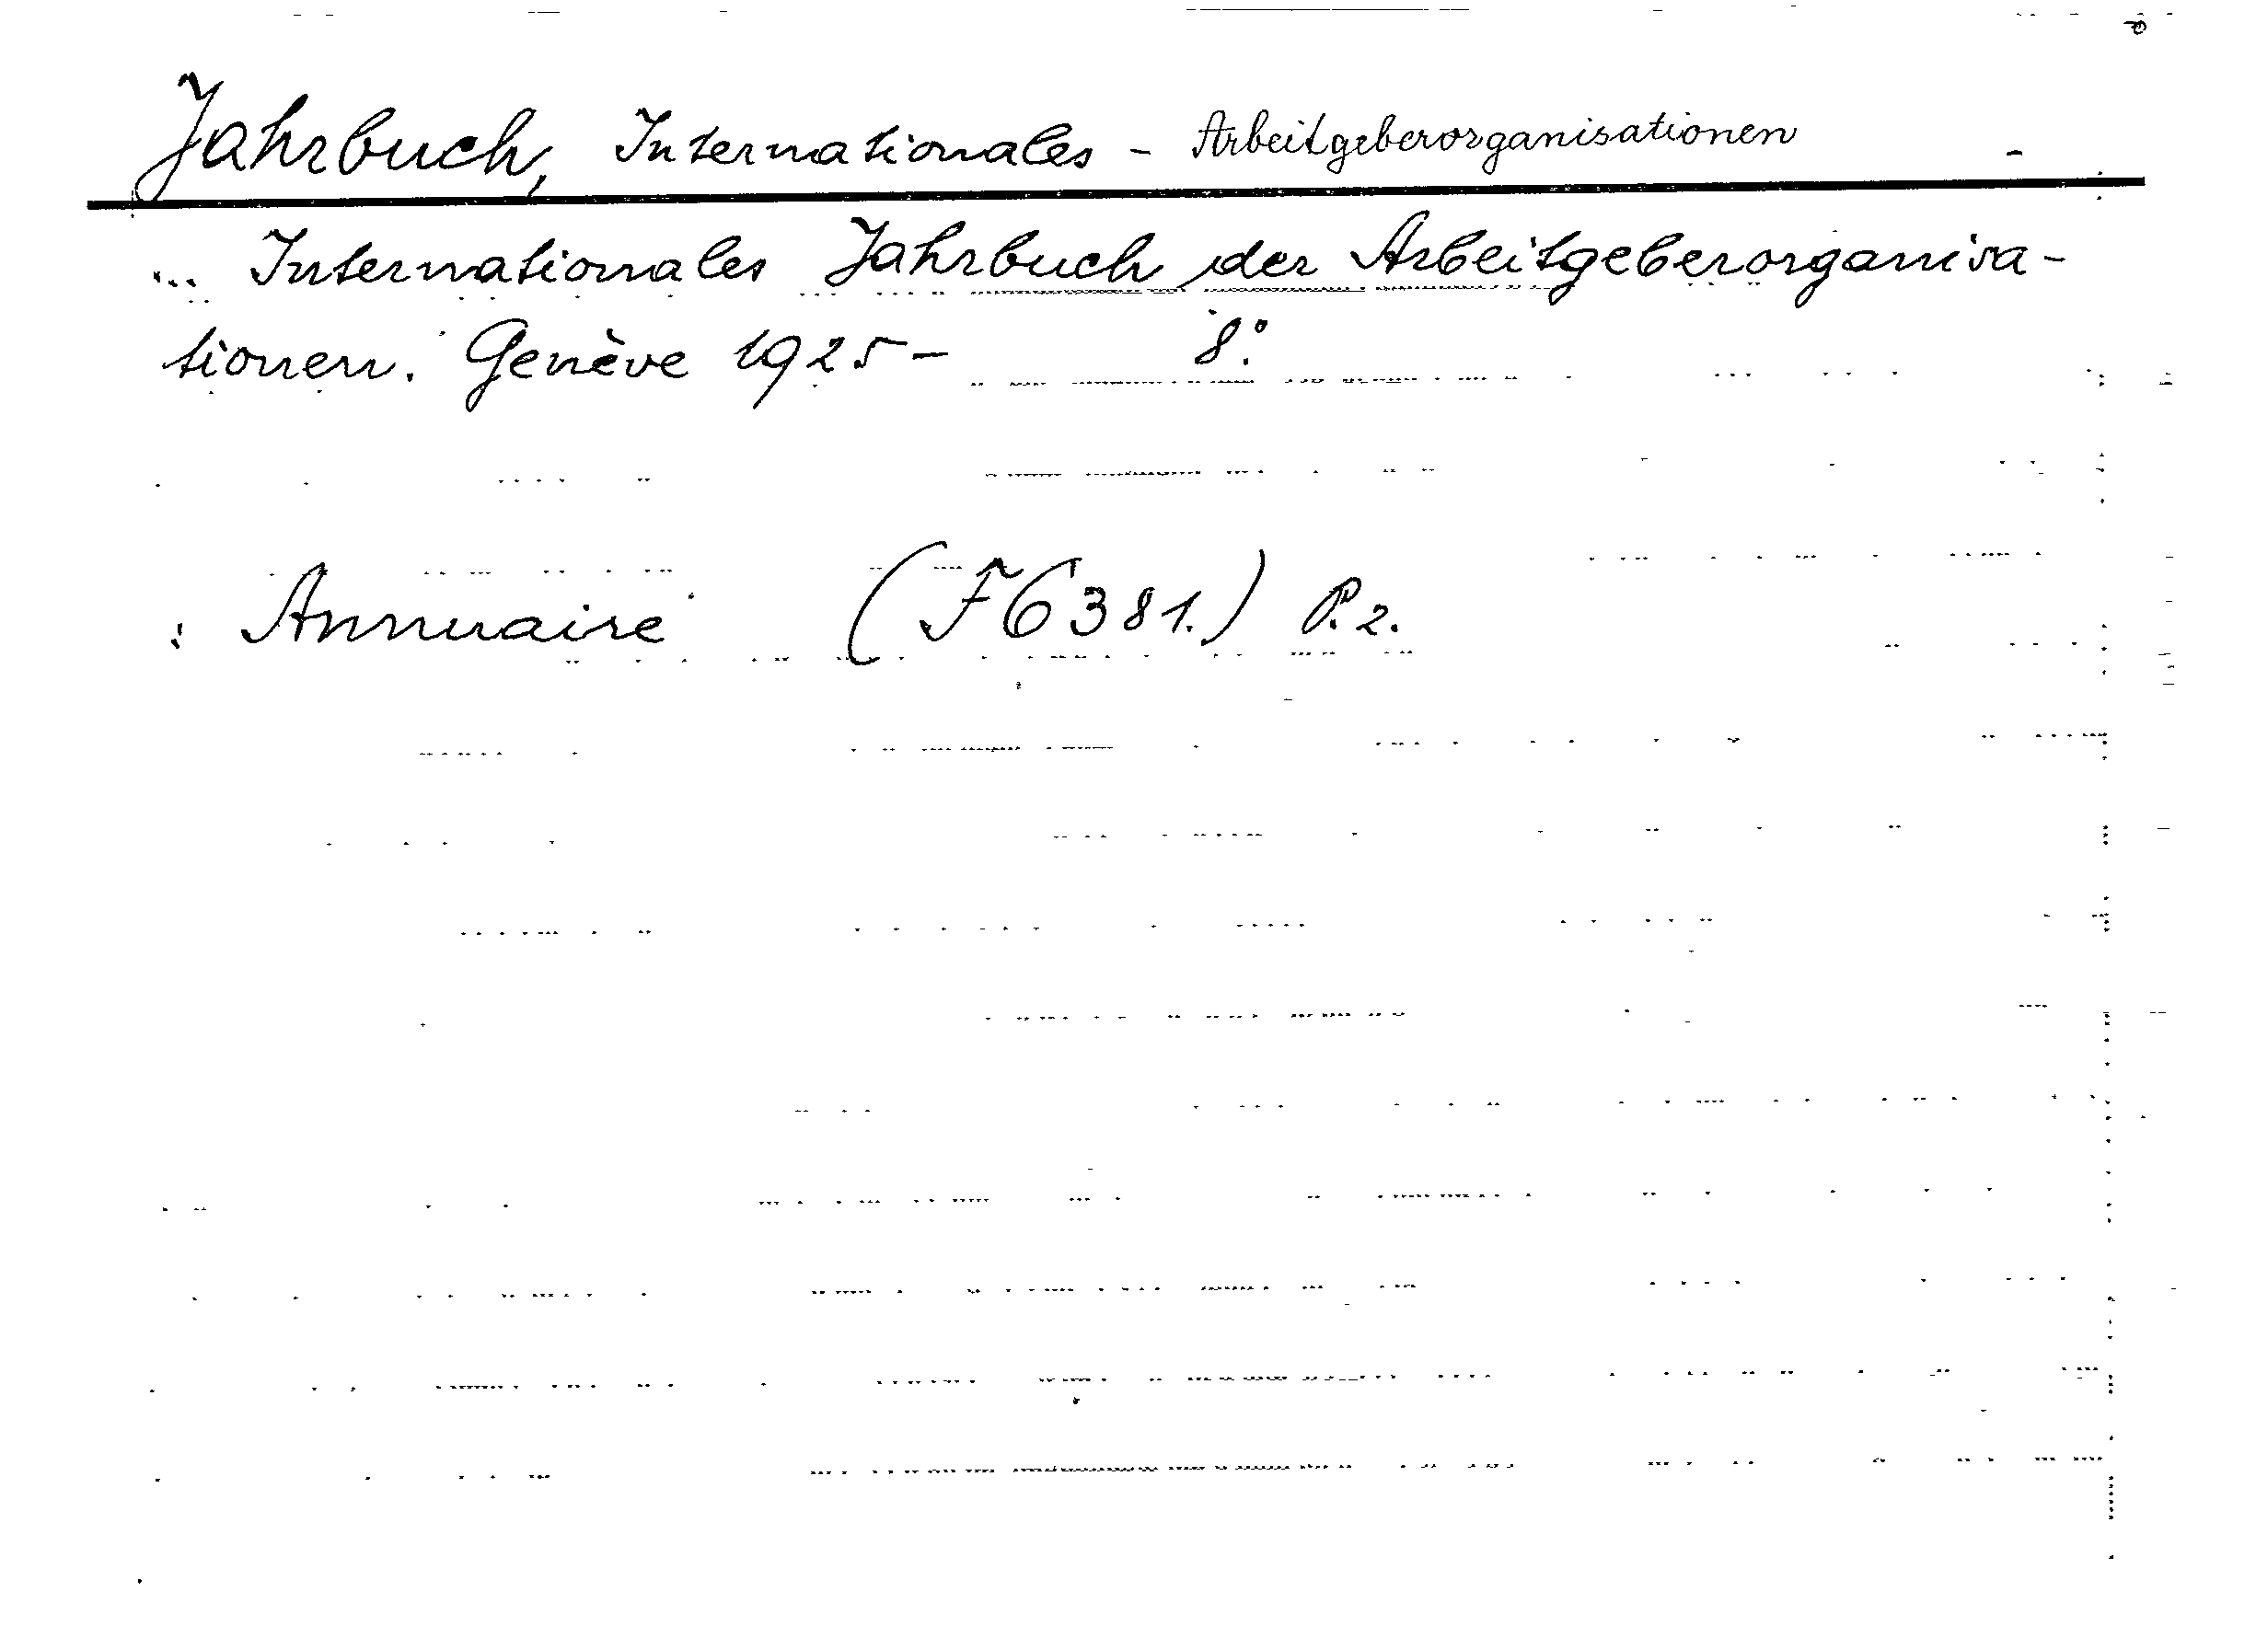 Jahrbuch, Internationales - Arbeitgeberorganisationen -
... Internationales Jahrbuch der Arbeitgeberorganisa-
tionen. Genève 1925 - 8°.
: Annuaire (F6381.) P.2.